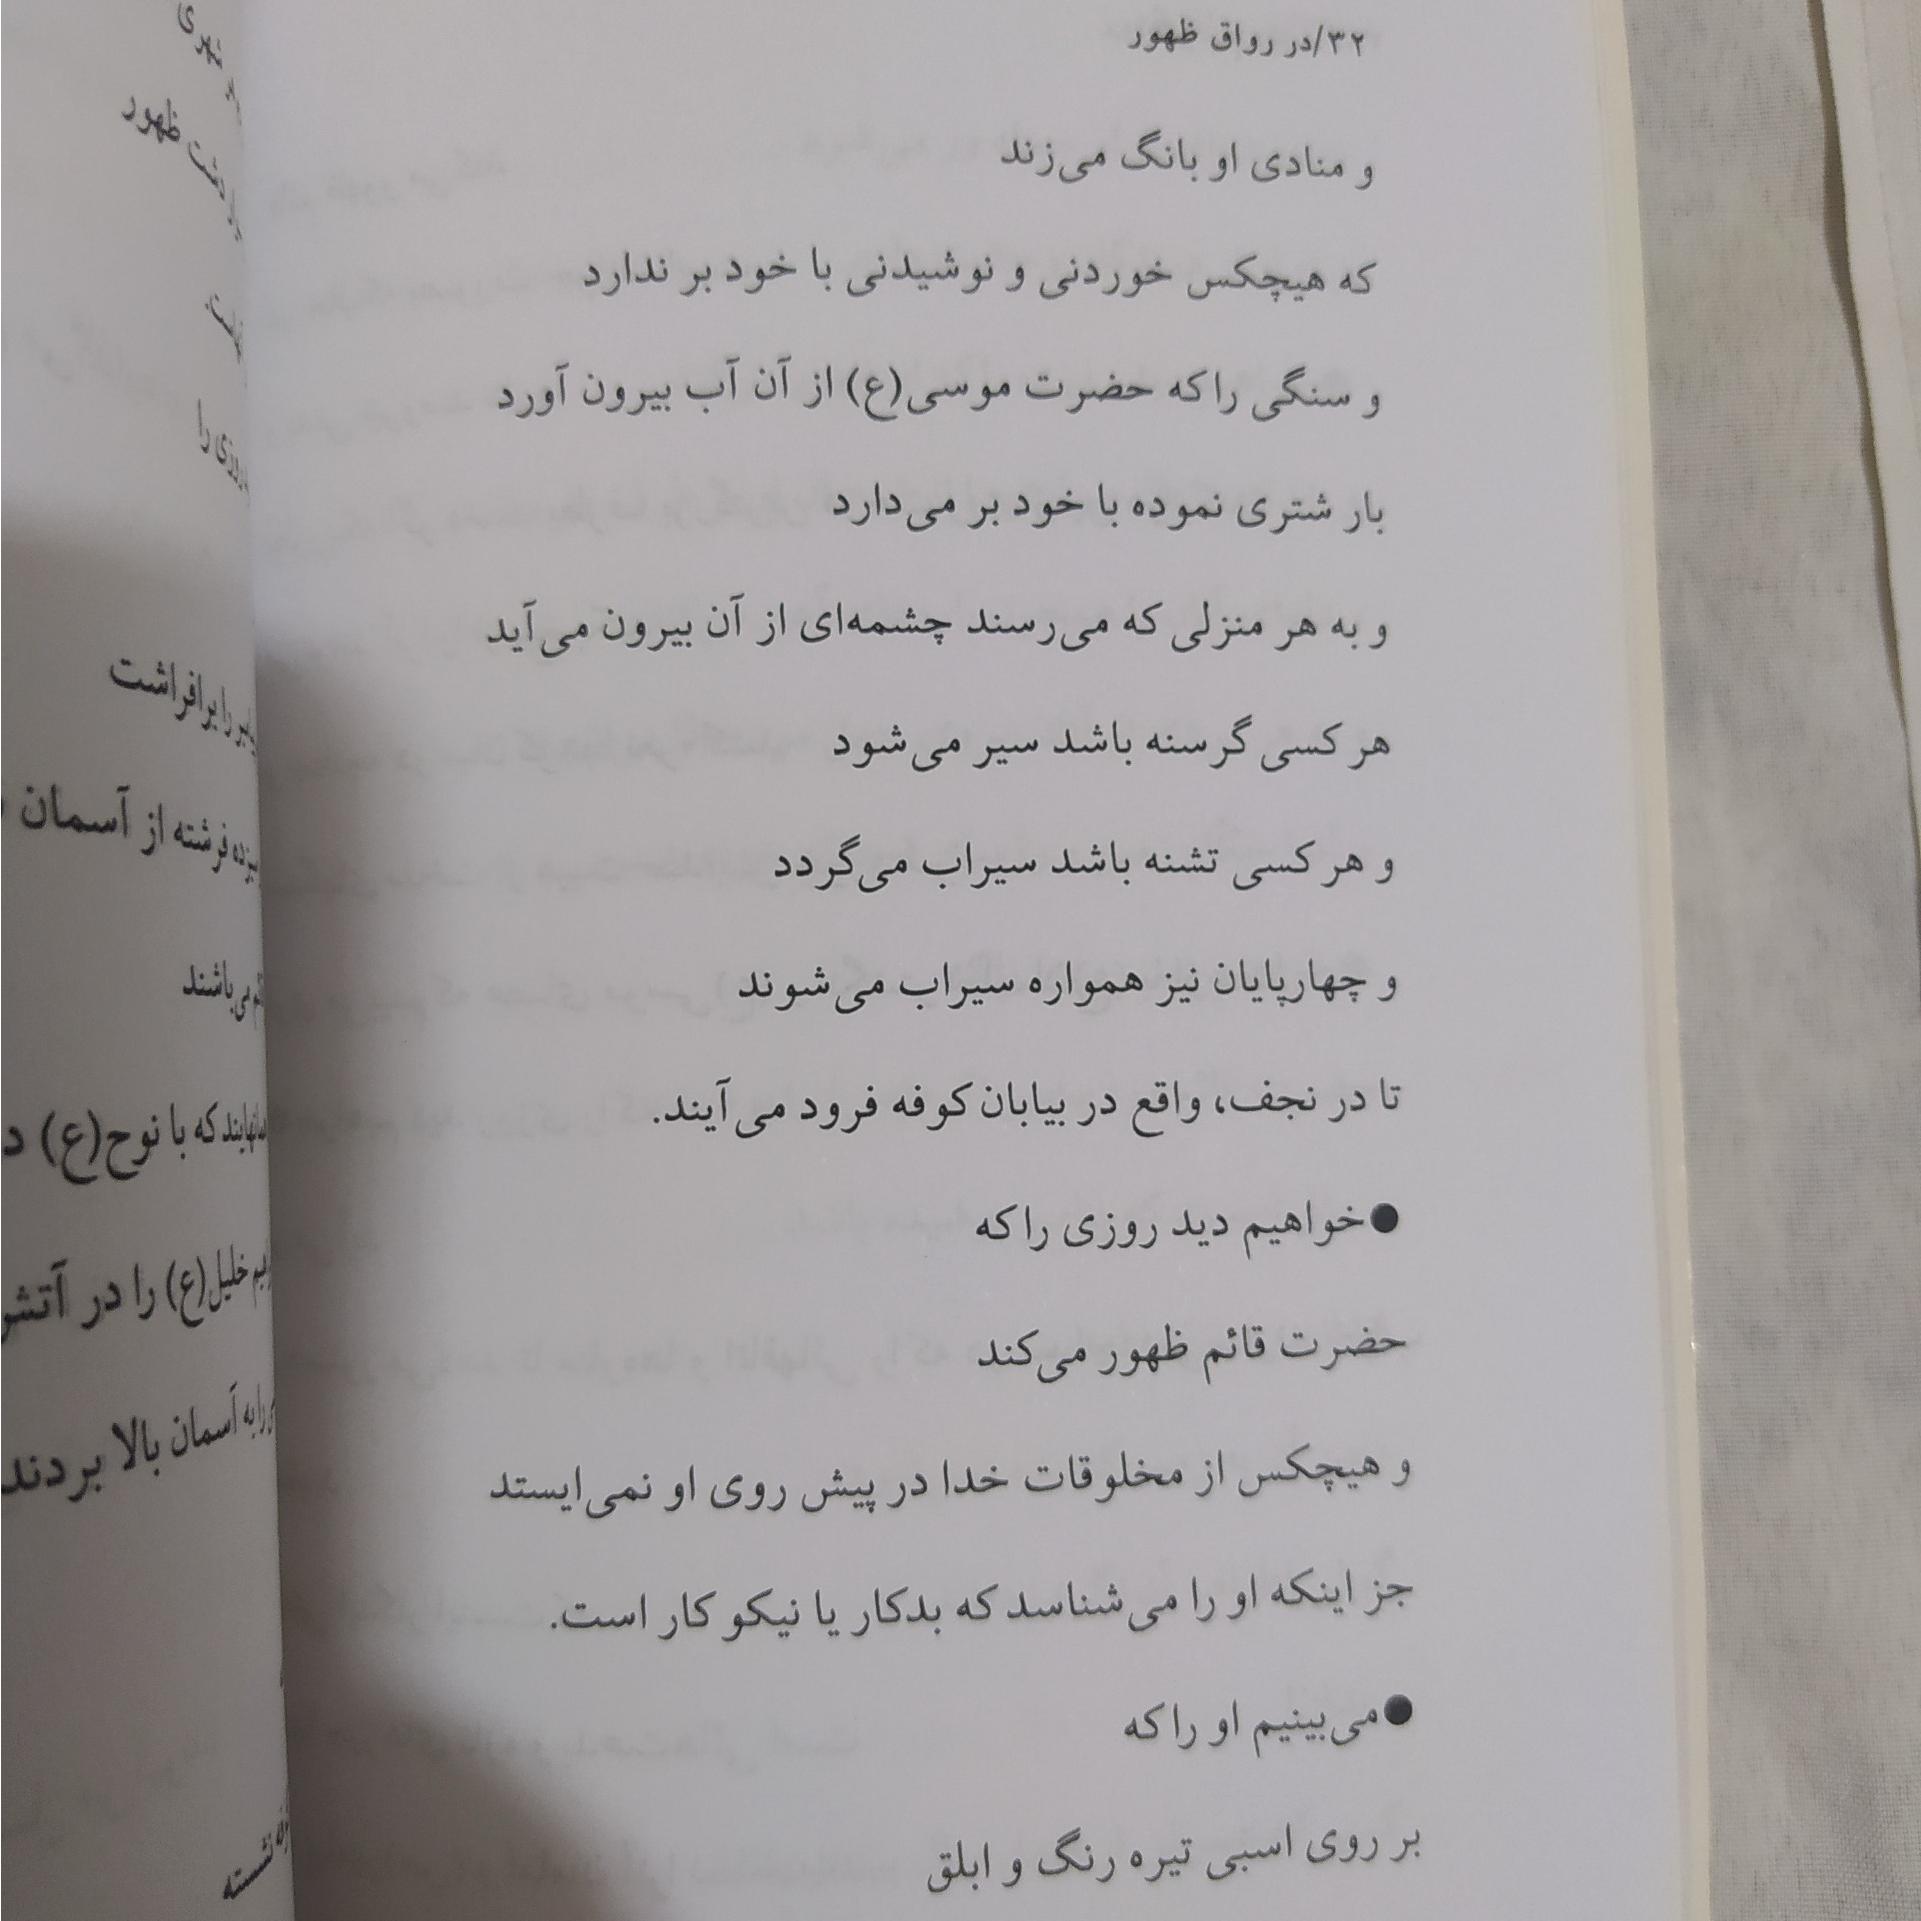 ۳۲/در رواق ظهور
و منادی او بانگ می‌زند
که هیچکس خوردنی و نوشیدنی با خود بر ندارد
و سنگی را که حضرت موسی(ع) از آن آب بیرون آورد
بار شتری نموده با خود بر می‌دارد
و به هر منزلی که می‌رسند چشمه‌ای از آن بیرون می‌آید
هر کسی گرسنه باشد سیر می‌شود
و هر کسی تشنه باشد سیراب می‌گردد
و چهارپایان نیز همواره سیراب می‌شوند
تا در نجف، واقع در بیابان کوفه فرود می‌آیند.
●خواهیم دید روزی را که
حضرت قائم ظهور می‌کند
و هیچکس از مخلوقات خدا در پیش روی او نمی‌ایستد
جز اینکه او را می‌شناسد که بدکار یا نیکو کار است.
●می‌بینیم او را که
بر روی اسبی تیره رنگ و ابلق
ظهور
روزی را
را برافراشت
فرشته از آسمان
می‌باشند
که با نوح(ع)
خلیل(ع) را در آتش
را به آسمان بالا بردند
نشسته